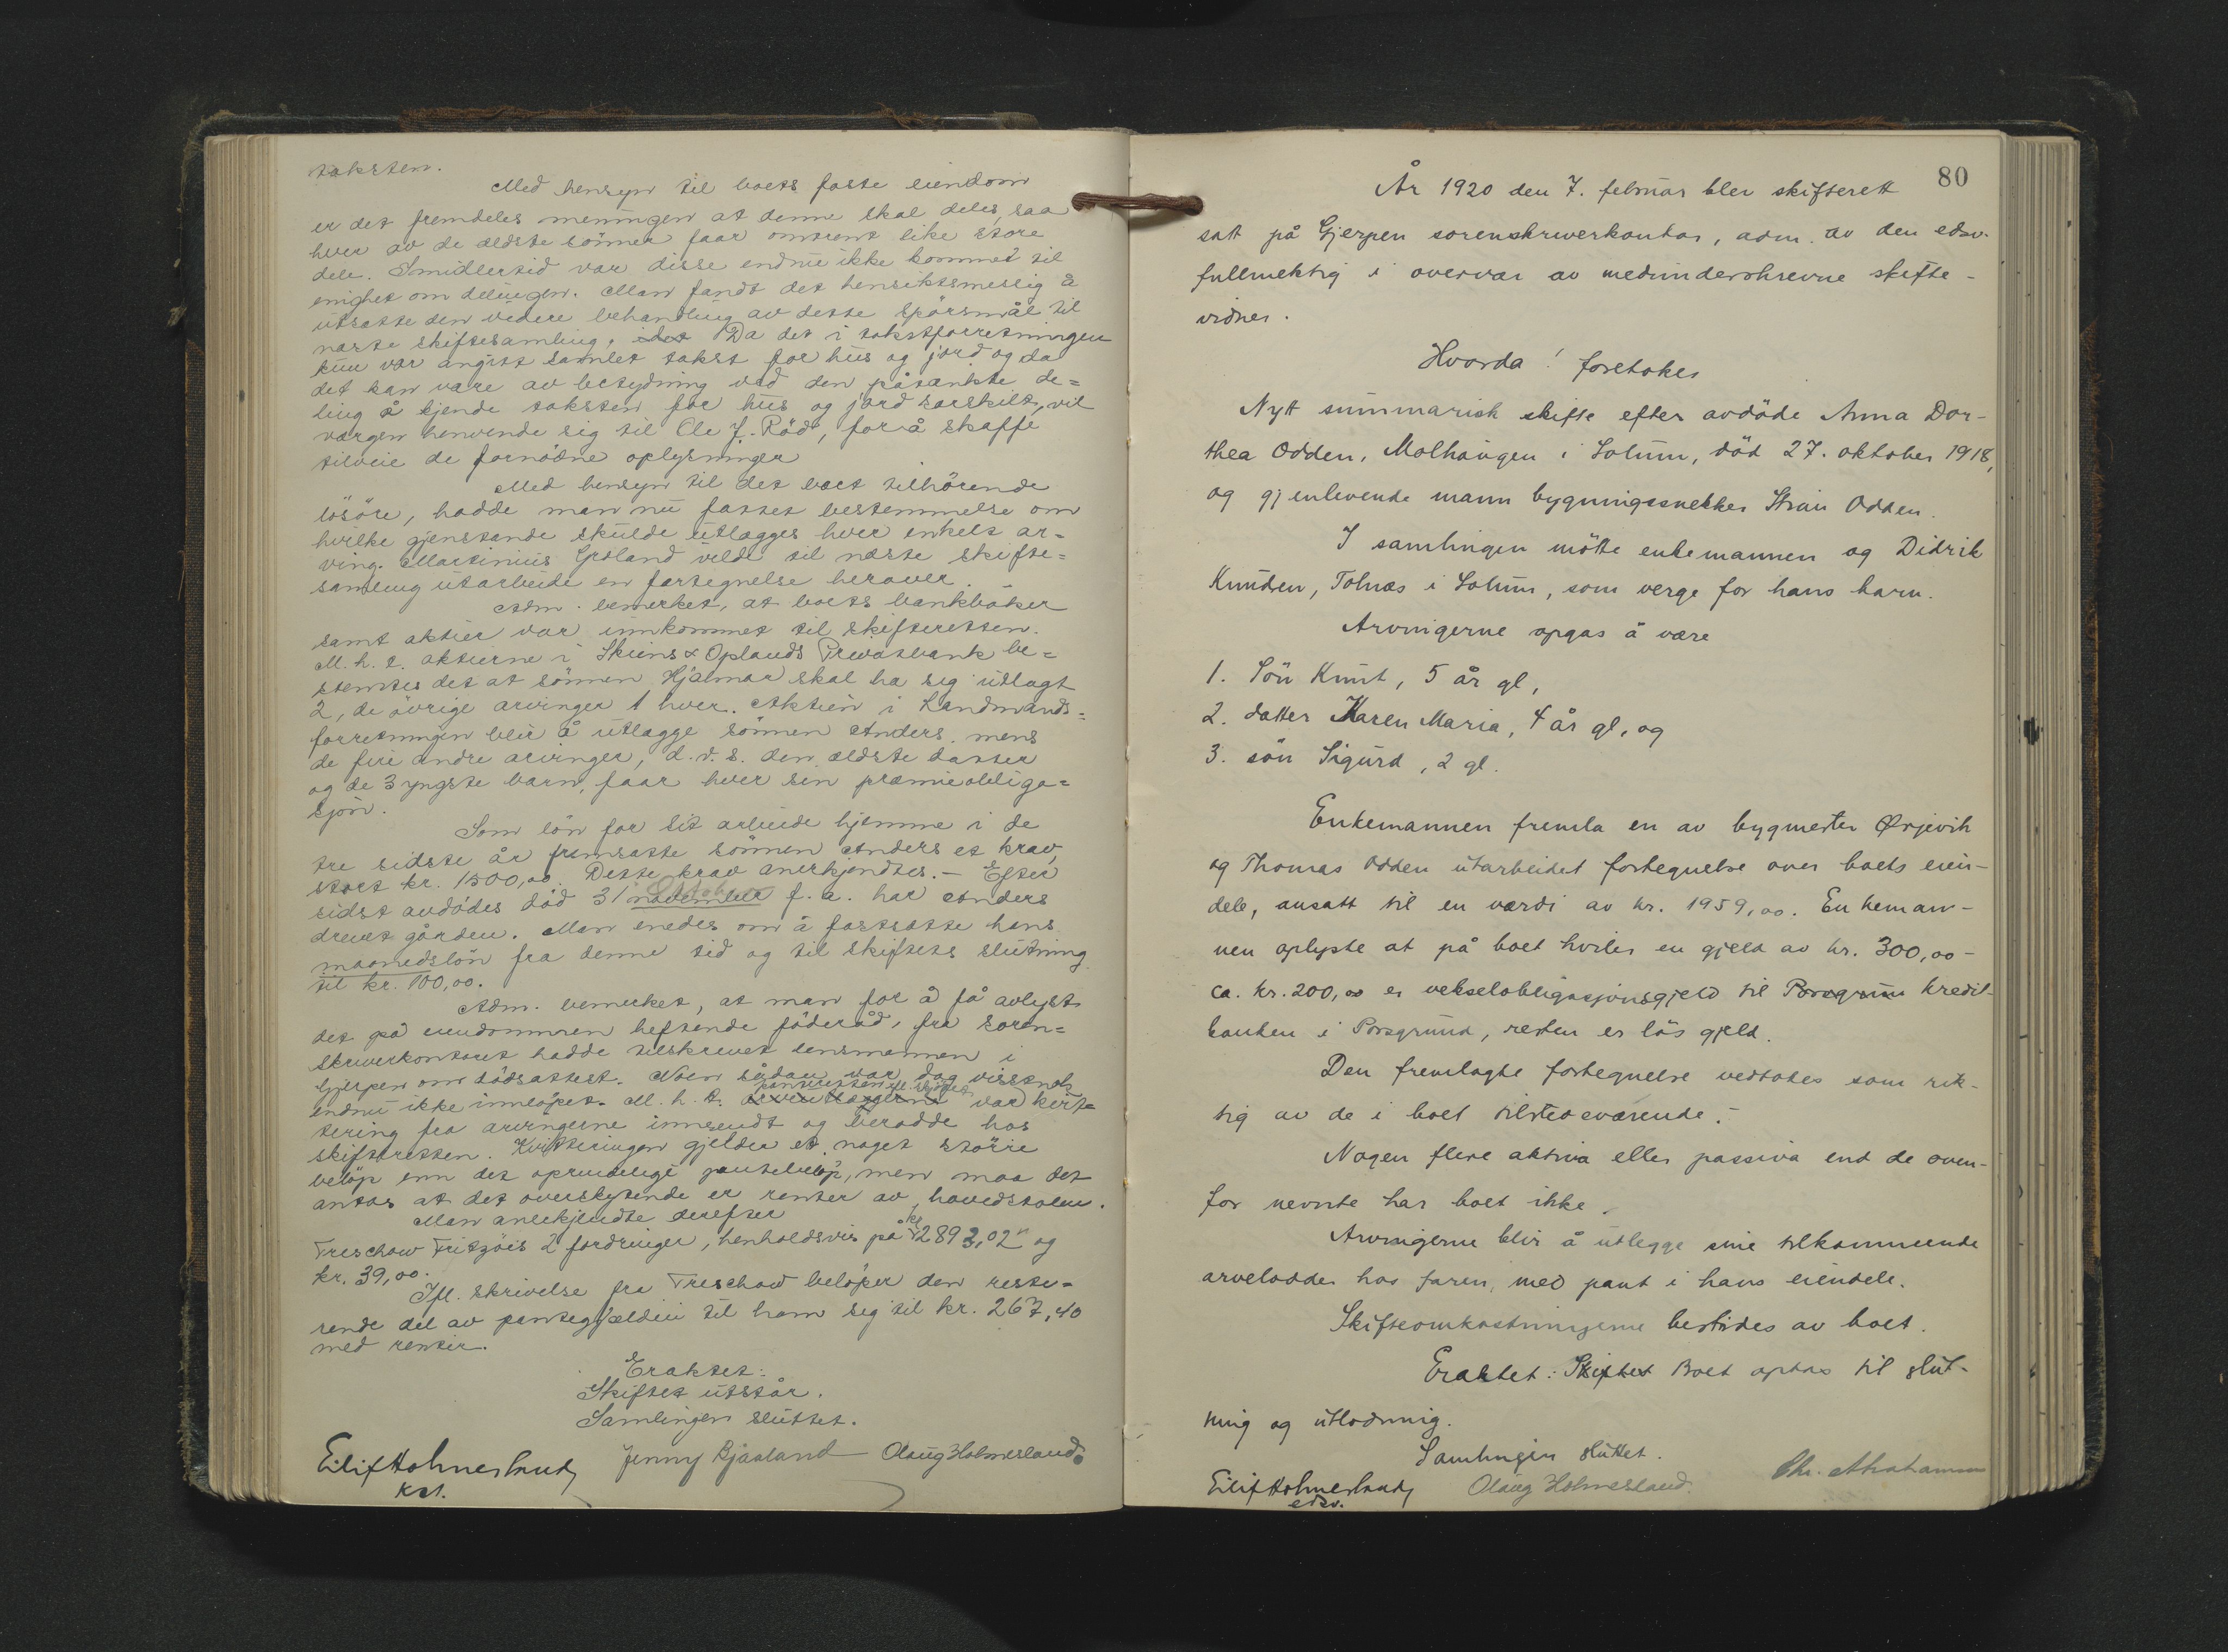 taksten.
Med hensyn til boets faste eiendom
er det fremdeles meningen at denne skal deles, saa
hver av de ældste sönner faar omtrent like store
dele. Imidlertid var disse endnu ikke kommet til
enighet om delingen. Man fandt det hensiktsmessig å
utsatte den videre behandling av dette spörsmål til
næste skiftesamling, idet Da det i takstforretningen
kun var angitt samlet takst for hus og jord og da
det kan være av betydning ved den påtænkte de=
ling å kjende taksten for hus og jord særskilt, vil
vergen henvende sig til Ole J. Röd, for å skaffe
tilveie de fornödne oplysninger
Med hensyn til det boet tilhörende
lösöre, hadde man nu fattet bestemmelse om
hvilke gjenstande skulde utlægges hver enkelt ar=
ving. Martinius Grotland vilde til næste skifte=
samling utarbeide en fortegnelse herover. –
Adm. bemerket, at boets bankböker
samt aktier var innkommet til skifteretten.
M. h. t. aktierne i Skiens & Oplands Privatbank be=
stemtes det at sönnen Hjalmar skal ha sig utlagt
2, de övrige arvinger 1 hver. Aktien i Landmands=
forretningen blir å utlægge sönnen Anders, mens
de fire andre arvinger, d.v.s. den ældste datter
og de 3 yngste barn, faar hver sin præmieobliga=
sjon.
Som lön for sit arbeide hjemme i de
tre sidste år fremsatte sönnen Anders et krav,
stort kr. 1500,00. Dette krav anerkjendtes. – Efter
sidst avdödes död 31 november f.a. har Anders
drevet gården. Man enedes om å fastsætte hans
maanedslön fra denne tid og til skiftets slutning
til kr. 100,00.
Adm. bemerket, at man for å få avlyst
det på eiendommen heftende föderåd, fra soren=
skriverkontoret hadde tilskrevet lensmannen i
Gjerpen om dödsattest. Noen sådan var dog visstnok
endnu ikke innlöpet. M. h. t. var kvit=
tering fra arvingerne innsendt og beroдde hos
skifteretten. Kvitteringen gjelder et noget större
belöp enn det oprindelige pantebelöp, men maa det
antas at det overskytende er renter av hovedstolen.
Man anerkjendte derefter
Treschow Fritzöes 2 fordringer, henholdsvis på kr 2893,02 og
kr. 39,00.
Ifl. skrivelse fra Treschow belöper den reste=
rende del av pantegjælden til ham sig til kr. 267,40
med renter.
Eraktet:
Skiftet utstår.
Samlingen sluttet.
Eilif Holmesland Jenny Bjaaland Olaug Holmesland
kst.
80
År 1920 den 7. februar blev skifterett
satt på Gjerpen sorenskriverkontor, adm. av den edsv.
fullmektig i overvær av medunderskrevne skifte-
vidner.
Hvorda! foretokes
Nytt summarisk skifte efter avdöde Anna Dor-
thea Odden, Molhaugen i Solum, död 27. oktober 1918,
og gjenlevende mann bygningssnekker Odden.
I samlingen mötte enkemannen og Didrik
Knudsen, Tolnæs i Solum, som verge for hans barn.
Arvingerne opgas å være
1. Sön Knut, 5 år gl,
2. datter Karen Maria, 4 år gl, og
3. sön Sigurd, 2 gl.
Enkemannen fremla en av bygmester Ørjevik
og Thomas Odden utarbeidet fortegnelse over boets eien-
dele, ansatt til en værdi av kr. 1959,00. Enkeman-
nen oplyste at på boet hviler en gjeld av kr. 300,00 –
ca. kr. 200,00 er vekselobligasjonsgjeld til Porsgrunn kredit-
banken i Porsgrund, resten er lös gjeld.
Den fremlagte fortegnelse vedtokes som rik-
tig av de i boet tilstedeværende. –
Nogen flere aktiva eller passiva end de oven-
for nevnte har boet ikke.
Arvingerne blir å utlegge sine tilkommende
arvelodder hos faren, med pant i hans eiendele.
Skifteomkostningerne bestrides av boet.
Eraktet: Skiftet Boet optas til slut-
ning og utlodning.
Samlingen sluttet.
Eilif Holmesland Olaug Holmesland. Chr. Abrahamsen
edsv.